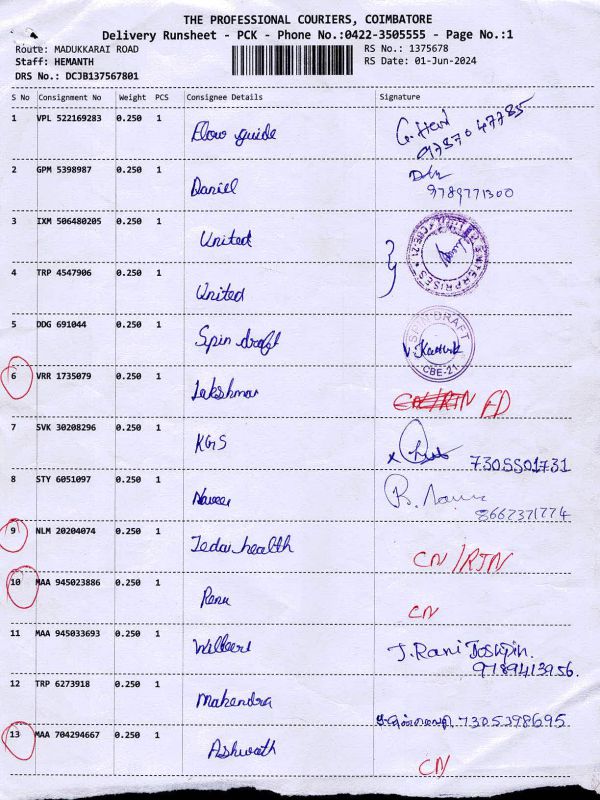 THE PROFESSIONAL COURIERS, COIMBATORE
Delivery Runsheet - PCK - Phone No.:0422-3505555 - Page No.:1
Route: MADUKKARAI ROAD RS No.: 1375678
Staff: HEMANTH RS Date: 01-Jun-2024
DRS No.: DCJB137567801
S No Consignment No Weight PCS Consignee Details Signature
1 VPL 522169283 0.250 1 Flow guide
9787047785
2 GPM 5398987 0.250 1 Daniel
9789771300
3 IXM 506480205 0.250 1 United
UNITED ENTERPRISES CBE-21
4 TRP 4547906 0.250 1 United
5 DDG 691044 0.250 1 Spin draft
SPIN DRAFT CBE-21
V. Karthik
6 VRR 1735079 0.250 1 Lakshmar CN/RTN FD
7 SVK 30208296 0.250 1 KGS 7305501731
8 STY 6051097 0.250 1 Naveen
8662371774
9 NLM 20204074 0.250 1 Tedai health CN/RTN
10 MAA 945023886 0.250 1 Renu CN
11 MAA 945033693 0.250 1 J. Rani
9789413956.
12 TRP 6273918 0.250 1 Mahendra 7305398695
13 MAA 704294667 0.250 1 Ashwath CN